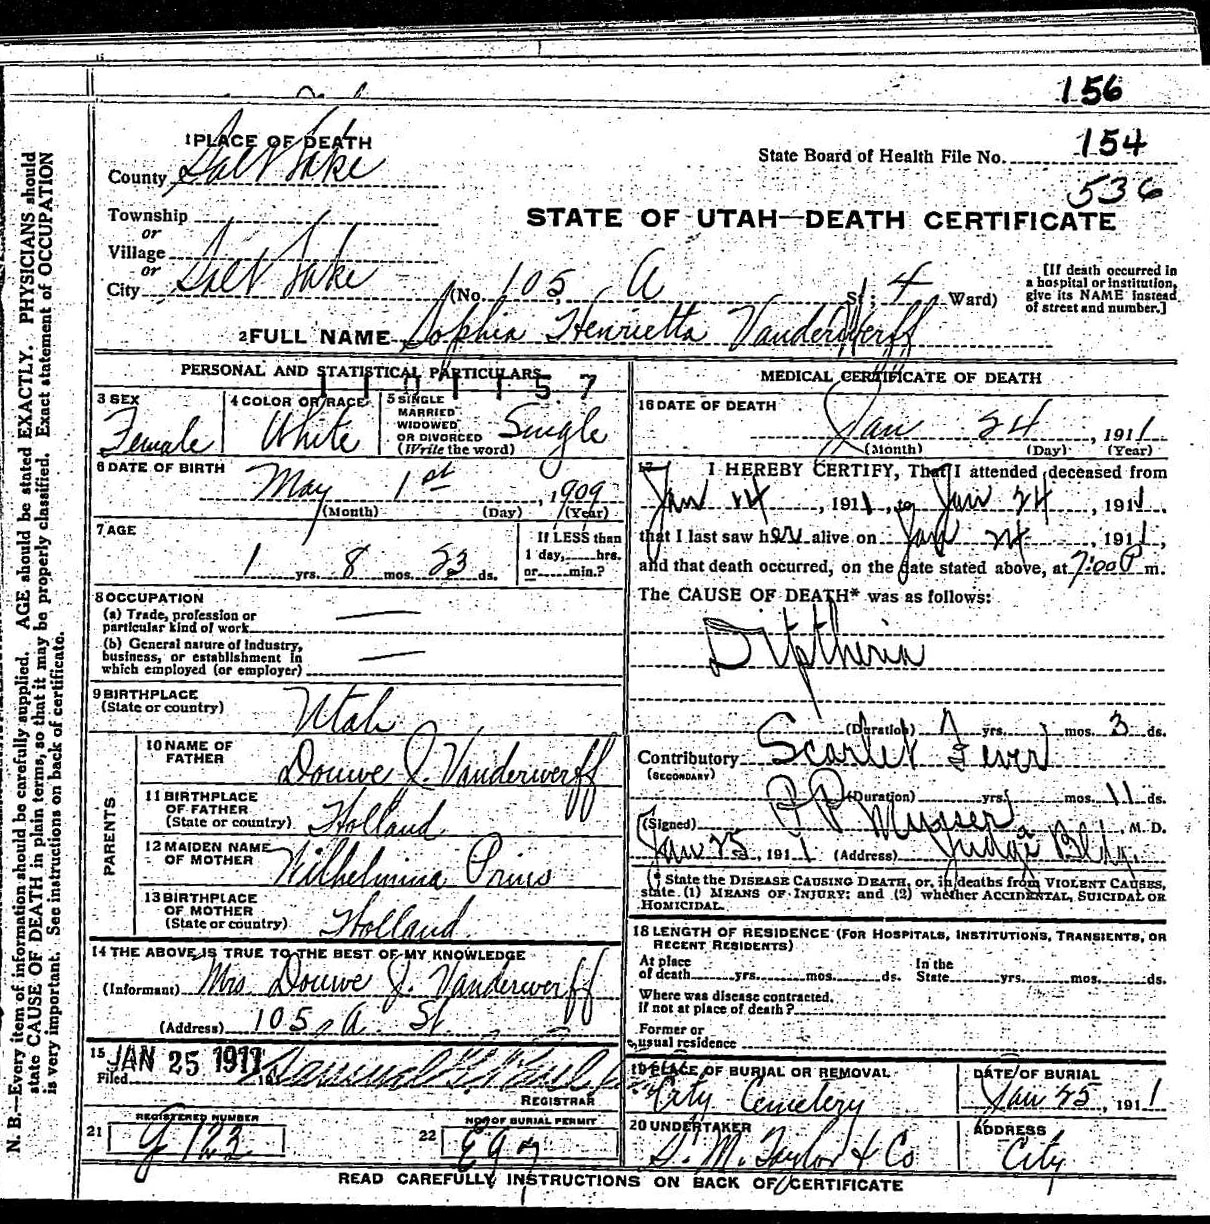 156
1 PLACE OF DEATH
State Board of Health File No. 154
County Salt Lake
536
Township
or
STATE OF UTAH—DEATH CERTIFICATE
Village
or
City Salt Lake (No. 105, A St.; 4 Ward)
[If death occurred in
a hospital or institution,
give its NAME instead
of street and number.]
2 FULL NAME Sophia Henrietta Vanderwerff
PERSONAL AND STATISTICAL PARTICULARS
1101157
3 SEX
Female
4 COLOR OR RACE
White
5 SINGLE
MARRIED
WIDOWED
OR DIVORCED
(Write the word)
Single
6 DATE OF BIRTH
May 1st, 1909
(Month) (Day) (Year)
7 AGE
1 yrs. 8 mos. 23 ds.
If LESS than
1 day, hrs.
or min.?
8 OCCUPATION
(a) Trade, profession or
particular kind of work
(b) General nature of industry,
business, or establishment in
which employed (or employer)
9 BIRTHPLACE
(State or country)
Utah
PARENTS
10 NAME OF
FATHER
Douwe J. Vanderwerff
11 BIRTHPLACE
OF FATHER
(State or country)
Holland
12 MAIDEN NAME
OF MOTHER
Wilhelmina Prins
13 BIRTHPLACE
OF MOTHER
(State or country)
Holland
14 THE ABOVE IS TRUE TO THE BEST OF MY KNOWLEDGE
(Informant) Mrs. Douwe J. Vanderwerff
(Address) 105 A St
15
Filed JAN 25 1911
REGISTRAR
REGISTERED NUMBER
21
123
NO. OF BURIAL PERMIT
22
MEDICAL CERTIFICATE OF DEATH
16 DATE OF DEATH
Jan 24, 1911
(Month) (Day) (Year)
17 I HEREBY CERTIFY, That I attended deceased from
Jan 24, 1911, to Jan 24, 1911,
that I last saw her alive on Jan 24, 1911,
and that death occurred, on the date stated above, at 7:00 P m.
The CAUSE OF DEATH* was as follows:
Diptheria
(Duration) yrs. mos. 3 ds.
Contributory Scarlet Fever
(SECONDARY)
(Duration) yrs. mos. 11 ds.
(Signed) Musser, M. D.
Jan 25, 1911 (Address) Judge Bldg.
(* State the DISEASE CAUSING DEATH, or, in deaths from VIOLENT CAUSES,
state (1) MEANS OF INJURY; and (2) whether ACCIDENTAL, SUICIDAL OR
HOMICIDAL.
18 LENGTH OF RESIDENCE (FOR HOSPITALS, INSTITUTIONS, TRANSIENTS, OR
RECENT RESIDENTS)
At place
of death yrs. mos. ds.
In the
State yrs. mos. ds.
Where was disease contracted,
if not at place of death?
Former or
usual residence
19 PLACE OF BURIAL OR REMOVAL
City Cemetery
DATE OF BURIAL
Jan 25, 1911
20 UNDERTAKER
S. M. Taylor & Co
ADDRESS
City
READ CAREFULLY INSTRUCTIONS ON BACK OF CERTIFICATE
N. B.—Every item of information should be carefully supplied. AGE should be stated EXACTLY. PHYSICIANS should
state CAUSE OF DEATH in plain terms, so that it may be properly classified. Exact statement of OCCUPATION
is very important. See instructions on back of certificate.